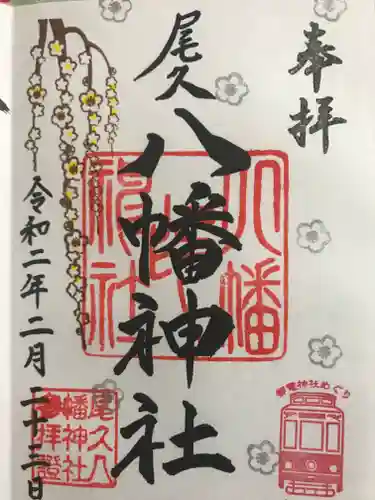 奉拝
尾久
八幡神社
令和二年二月二十三日
八幡神社
尾久八
幡神社
拝證
都電神社めぐり